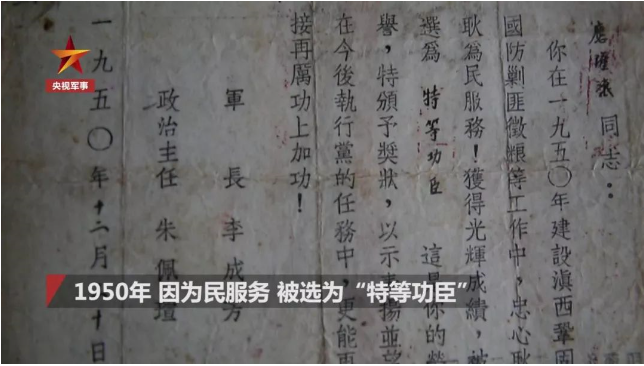 央视军事
同志：
你在一九五〇年建設滇西鞏固
國防剿匪徵糧等工作中，忠心耿
耿為民服務！獲得光輝成績，被
選為 特等功臣 這是你的榮
譽，特頒予獎狀，以示表揚並望
在今後執行黨的任務中，更能再
接再厲功上加功！
軍長 李成芳
政治主任 朱佩
一九五〇年十二月 十日
1950年 因为民服务 被选为“特等功臣”